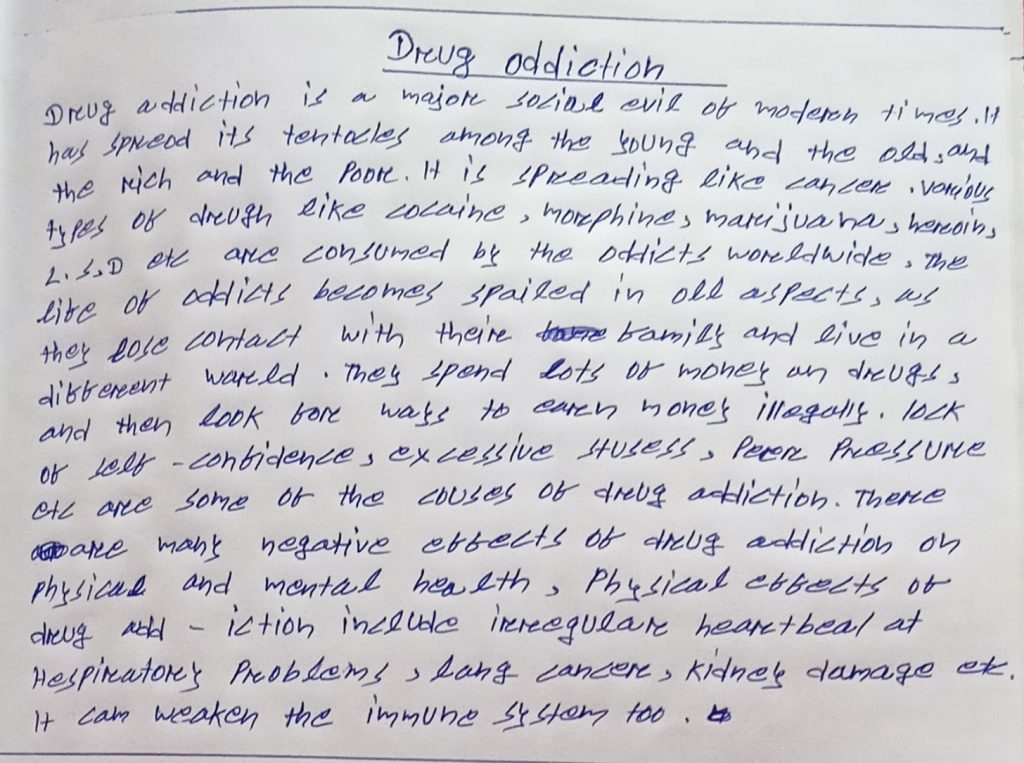 Drug oddiction
Drug addiction is a major social evil of modern times. It
has spread its tentacles among the young and the old, and
the rich and the poor. It is spreading like cancer. various
types of drugh like cocaine, morphine, marijuana, heroin,
L.S.D etc are consumed by the oddicts worldwide, The
life of addicts becomes spailed in all aspects, as
they lose contact with their family and live in a
different warld. They spend lots of money on drugs,
and then look for ways to earn money illegally. lack
of self-confidence, excessive stusess, Peer Pressure
etc are some of the couses of drug addiction. There
are many negative effects of drug addiction on
physical and mental health, Physical effects of
drug add-iction include irregular heartbeal at
Respiratory Problems, lang cancer, kidney damage etc.
It can weaken the immune system too.